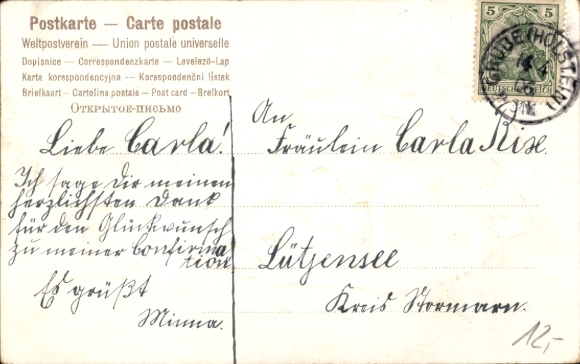 Postkarte — Carte postale
Weltpostverein — Union postale universelle
Dopisnice — Correspondenzkarte — Levelező-Lap
Karta korespondencyjna — Korespondenční lístek
Briefkaart — Cartolina postale — Post card — Brefkort
Открытое-письмо
Liebe Carla!
Ich sage Dir meinen
herzlichsten Dank
für den Glückwunsch
zu meiner Confirma
tion
Es grüßt
Minna.
An
Fräulein Carla Rixe.
Lütjensee
Kreis Stormarn.
5 5
DEUTSCHES REICH
(HOLSTEIN)
12,-